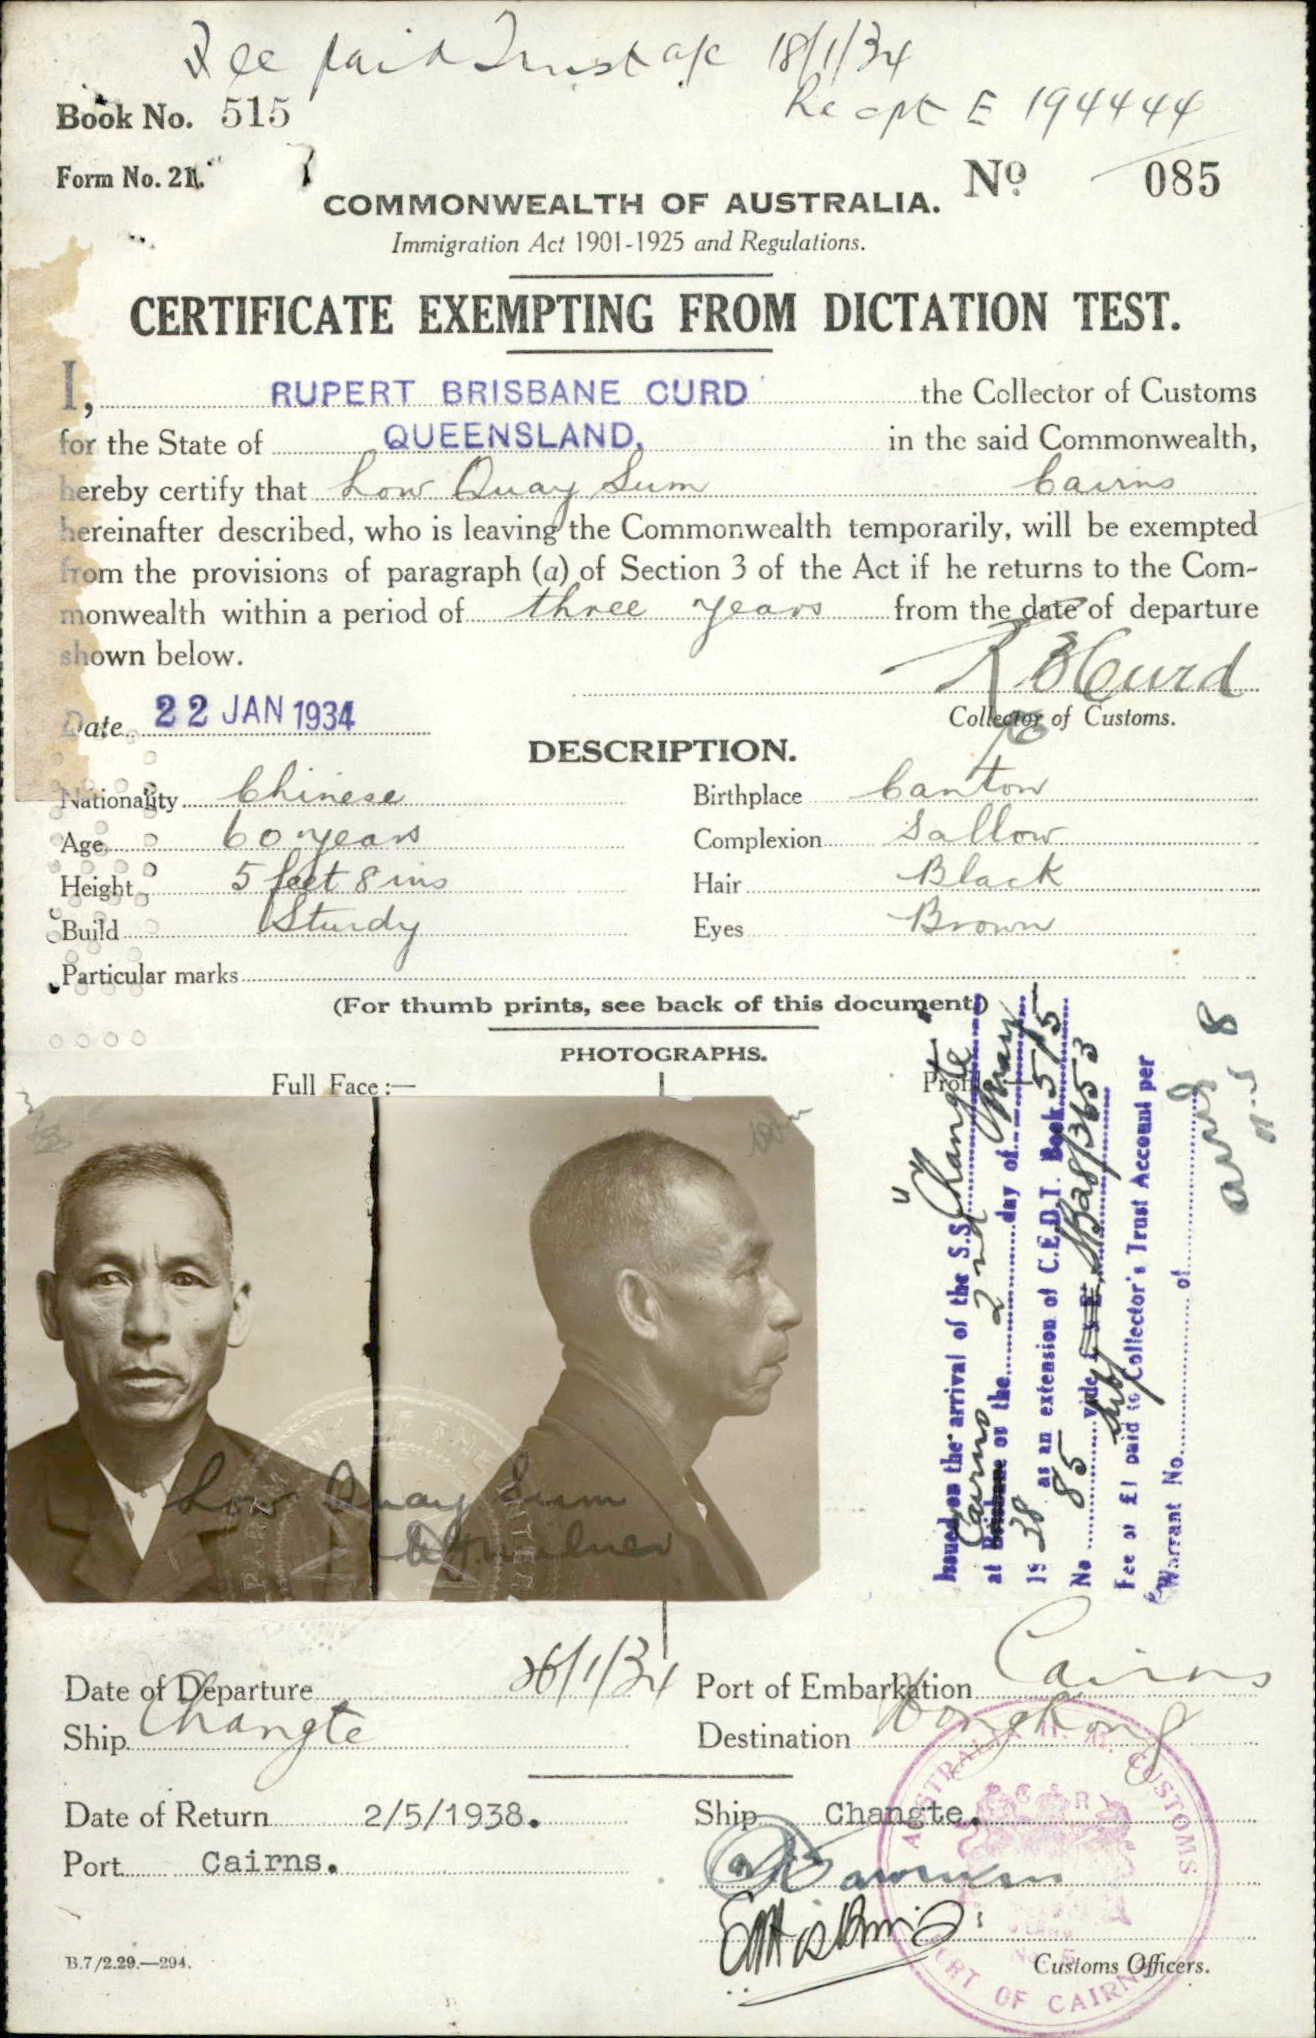 Fee paid Trust a/c 18/1/34
Recpt E 194444
Book No. 515
Form No. 21.
No 085
COMMONWEALTH OF AUSTRALIA.
Immigration Act 1901-1925 and Regulations.
CERTIFICATE EXEMPTING FROM DICTATION TEST.
I, RUPERT BRISBANE CURD the Collector of Customs
for the State of QUEENSLAND, in the said Commonwealth,
hereby certify that Low Quay Sum Cairns
hereinafter described, who is leaving the Commonwealth temporarily, will be exempted
from the provisions of paragraph (a) of Section 3 of the Act if he returns to the Com-
monwealth within a period of three years from the date of departure
shown below.
R B Curd
Date 22 JAN 1934
Collector of Customs.
DESCRIPTION.
Nationality Chinese Birthplace Canton
Age 60 years Complexion Sallow
Height 5 feet 8 ins Hair Black
Build Sturdy Eyes Brown
Particular marks
(For thumb prints, see back of this document.)
PHOTOGRAPHS.
Full Face:—
Prof
Low Quay Sum
Issued on the arrival of the S.S. "Changte"
at Brisbane Cairns on the 2nd day of May
1938 as an extension of C.E.D.T. Book 515
No 85 vide
Fee of £1 paid to Collector's Trust Account per
Warrant No. of
Date of Departure 26/1/34 Port of Embarkation Cairns
Ship Changte Destination Hongkong
Date of Return 2/5/1938. Ship Changte.
Port Cairns.
AUSTRALIA H. M. CUSTOMS
PORT OF CAIRNS
B.7/2.29.—294.
Customs Officers.